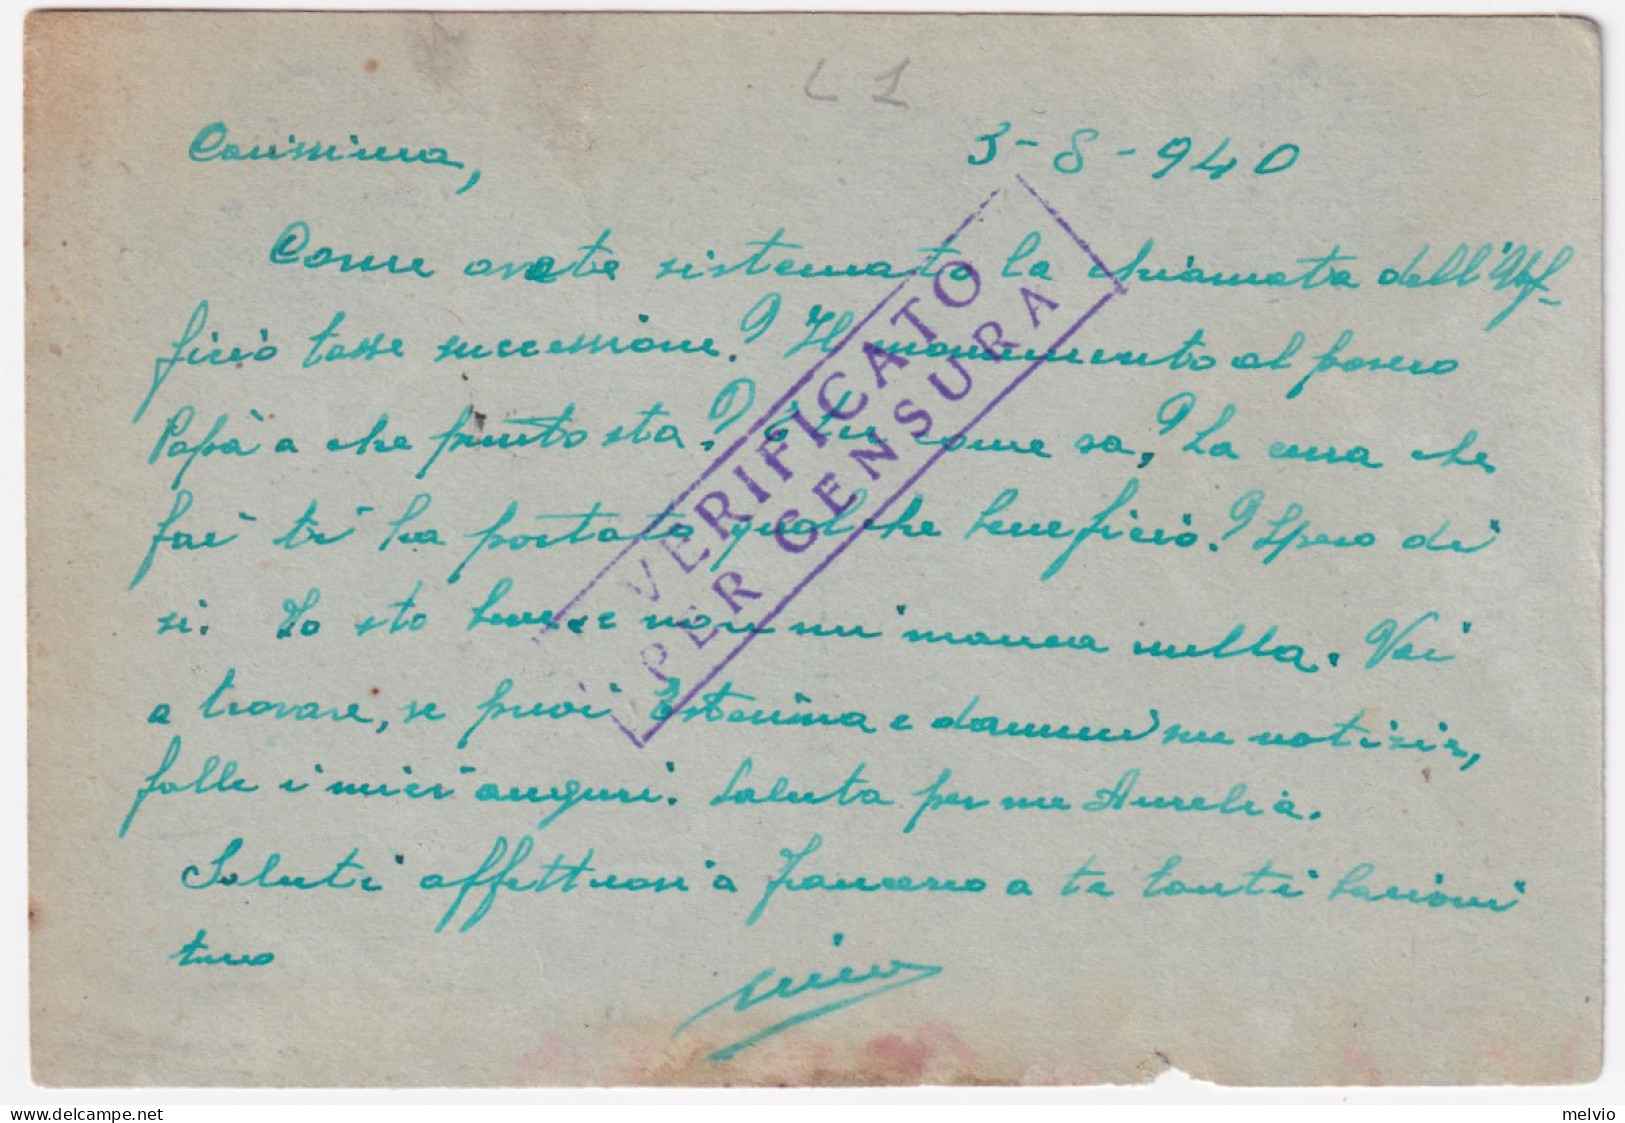 L 1
Carissima,
3-8-940
Come avete sistemato la chiamata dell'Uf-
ficio tasse successione? Il monumento al povero
Papà a che punto sta? e tu come va? La cura che
fai ti ha portato qualche beneficio? Spero di
si. Io sto bene e non mi manca nulla. Vai
a trovare, se puoi Esterina e dammi sue notizie,
falle i miei auguri. Saluta per me Aurelia.
Saluti affettuosi a Francesco a te tanti bacioni
tuo
VERIFICATO
PER CENSURA
melvio